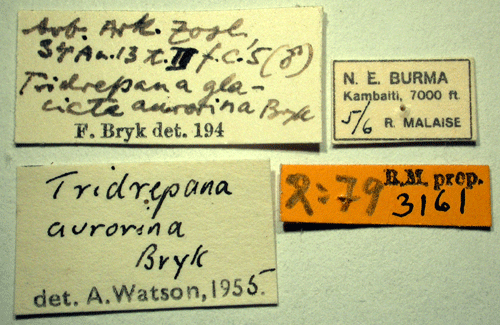 Arb. Ark. Zool.
34 A n. 13 t. II f. C. 5 (♂)
Tridrepana gla-
cicta aurorina Bryk
F. Bryk det. 194
N. E. BURMA
Kambaiti, 7000 ft.
5/6 R. MALAISE
Tridrepana
aurorina
Bryk
det. A. Watson, 1955.
B.M. prep.
3161
R:79